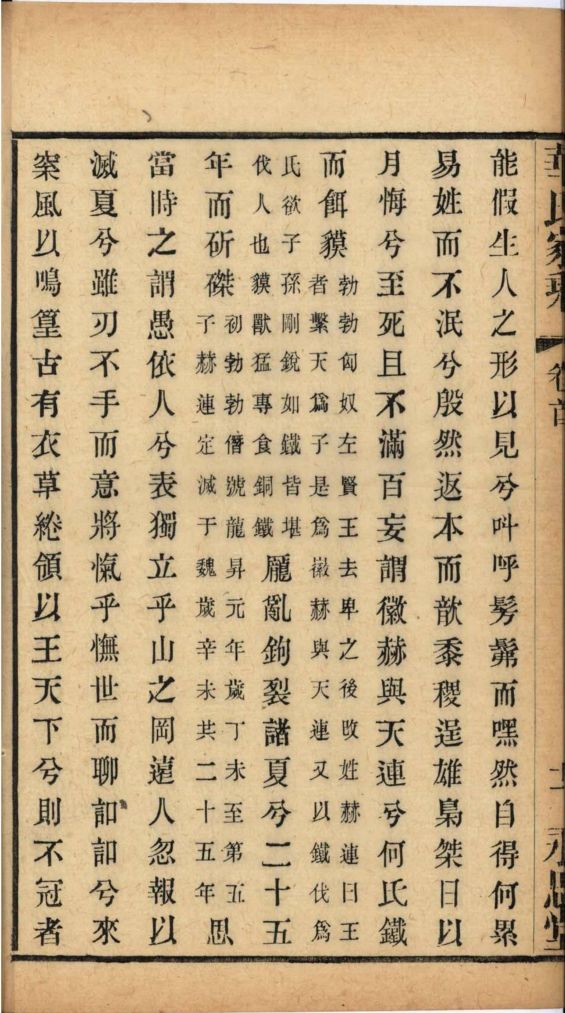 能假生人之形以見兮叫呼髣髴而嘿然自得何累
易姓而不泯兮殷然返本而歆黍稷逞雄梟桀日以
月悔兮至死且不滿百妄謂徽赫與天連兮何氏鐵
而餌貘
勃勃匈奴左賢王去卑之後改姓赫連曰王
者繫天爲子是爲徽赫與天連又以鐵伐爲
氏欲子孫剛銳如鐵皆堪
伐人也貘獸猛專食銅鐵
厖亂鉤裂諸夏兮二十五
年而斫磔
初勃勃僭號龍昇元年歲丁未至第五
子赫連定滅于魏歲辛未其二十五年
思
當時之謂愚依人兮表獨立乎山之岡遠人忽報以
滅夏兮雖刃不手而意將愾乎憮世而聊訠訠兮來
窣風以鳴篁古有衣草綣領以王天下兮則不冠者
卷首